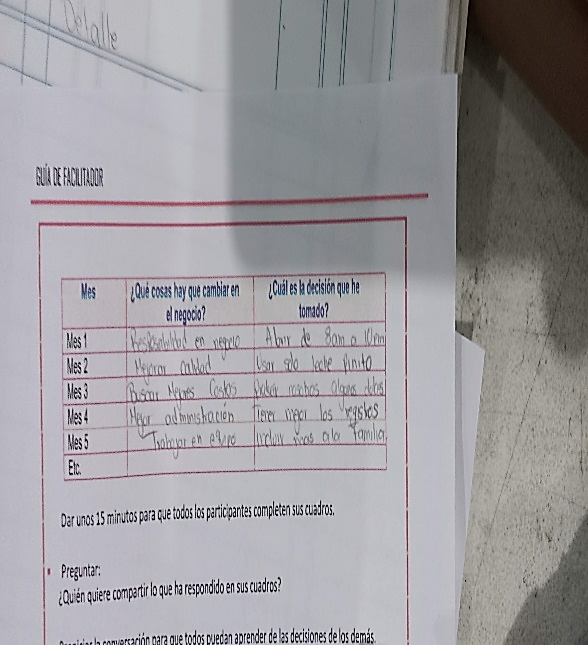 Detalle
GUÍA DE FACILITADOR
Mes ¿Qué cosas hay que cambiar en el negocio? ¿Cuál es la decisión que he tomado?
Mes 1 en negocio Abrir de 8am a 10pm
Mes 2 Mejorar calidad Usar solo leche Pinito
Mes 3 Buscar Mejores Costos
Mes 4 Mejor administración Tener mejor los registos
Mes 5 Trabajar en equipo Incluir mas a la familia
Etc.
Dar unos 15 minutos para que todos los participantes completen sus cuadros.
Preguntar:
¿Quién quiere compartir lo que ha respondido en sus cuadros?
la conversación para que todos puedan aprender de las decisiones de los demás.